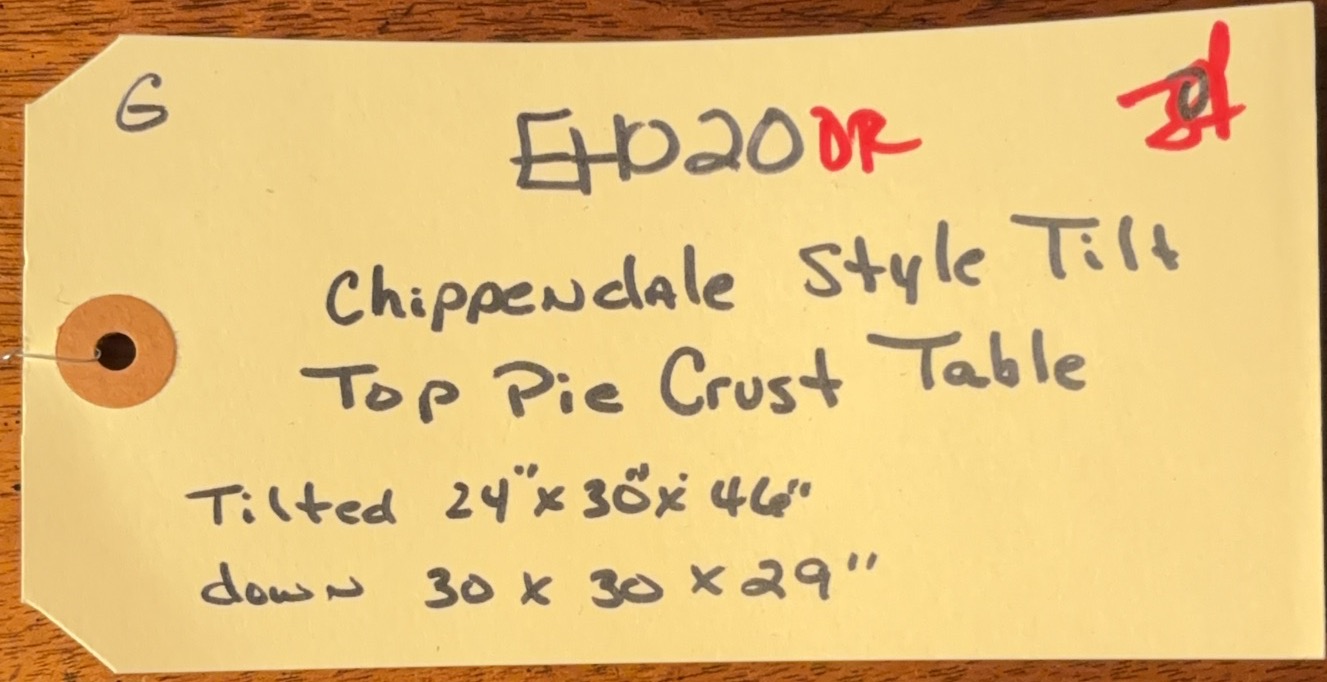 G
EHD20 DR
Chippendale Style Tilt
Top Pie Crust Table
Tilted 24" x 30" x 46"
down 30 x 30 x 29"